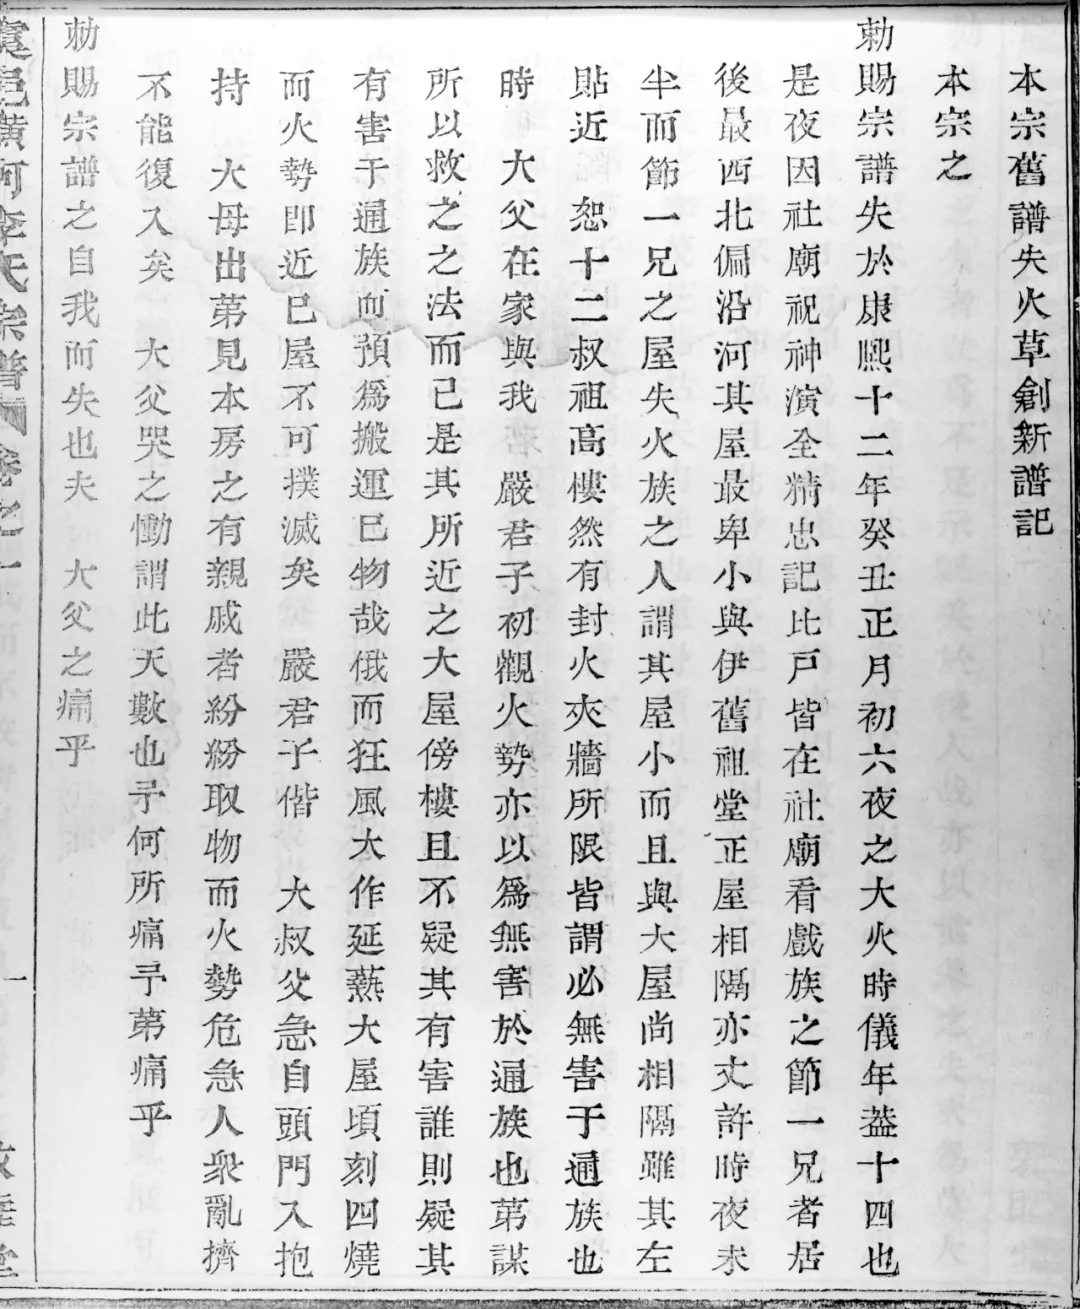 本宗舊譜失火草創新譜記
本宗之
勅賜宗譜失於康熙十二年癸丑正月初六夜之大火時儀年葢十四也
是夜因社廟祝神演全精忠記比戸皆在社廟看戲族之節一兄者居
後最西北偏沿河其屋最卑小與伊舊祖堂正屋相隔亦丈許時夜未
半而節一兄之屋失火族之人謂其屋小而且與大屋尚相隔雖其左
貼近 恕十二叔祖高樓然有封火夾牆所限皆謂必無害于通族也
時 大父在家與我 嚴君子初觀火勢亦以爲無害於通族也第謀
所以救之之法而已是其所近之大屋傍樓且不疑其有害誰則疑其
有害于通族而預爲搬運已物哉俄而狂風大作延爇大屋頃刻四燒
而火勢卽近已屋不可撲滅矣 嚴君子偕 大叔父急自頭門入抱
持 大母出第見本房之有親戚者紛紛取物而火勢危急人衆亂擠
不能復入矣 大父哭之慟謂此天數也予何所痛予第痛乎
勅賜宗譜之自我而失也夫 大父之痛乎
虞邑橫河李氏宗譜 卷之一 一